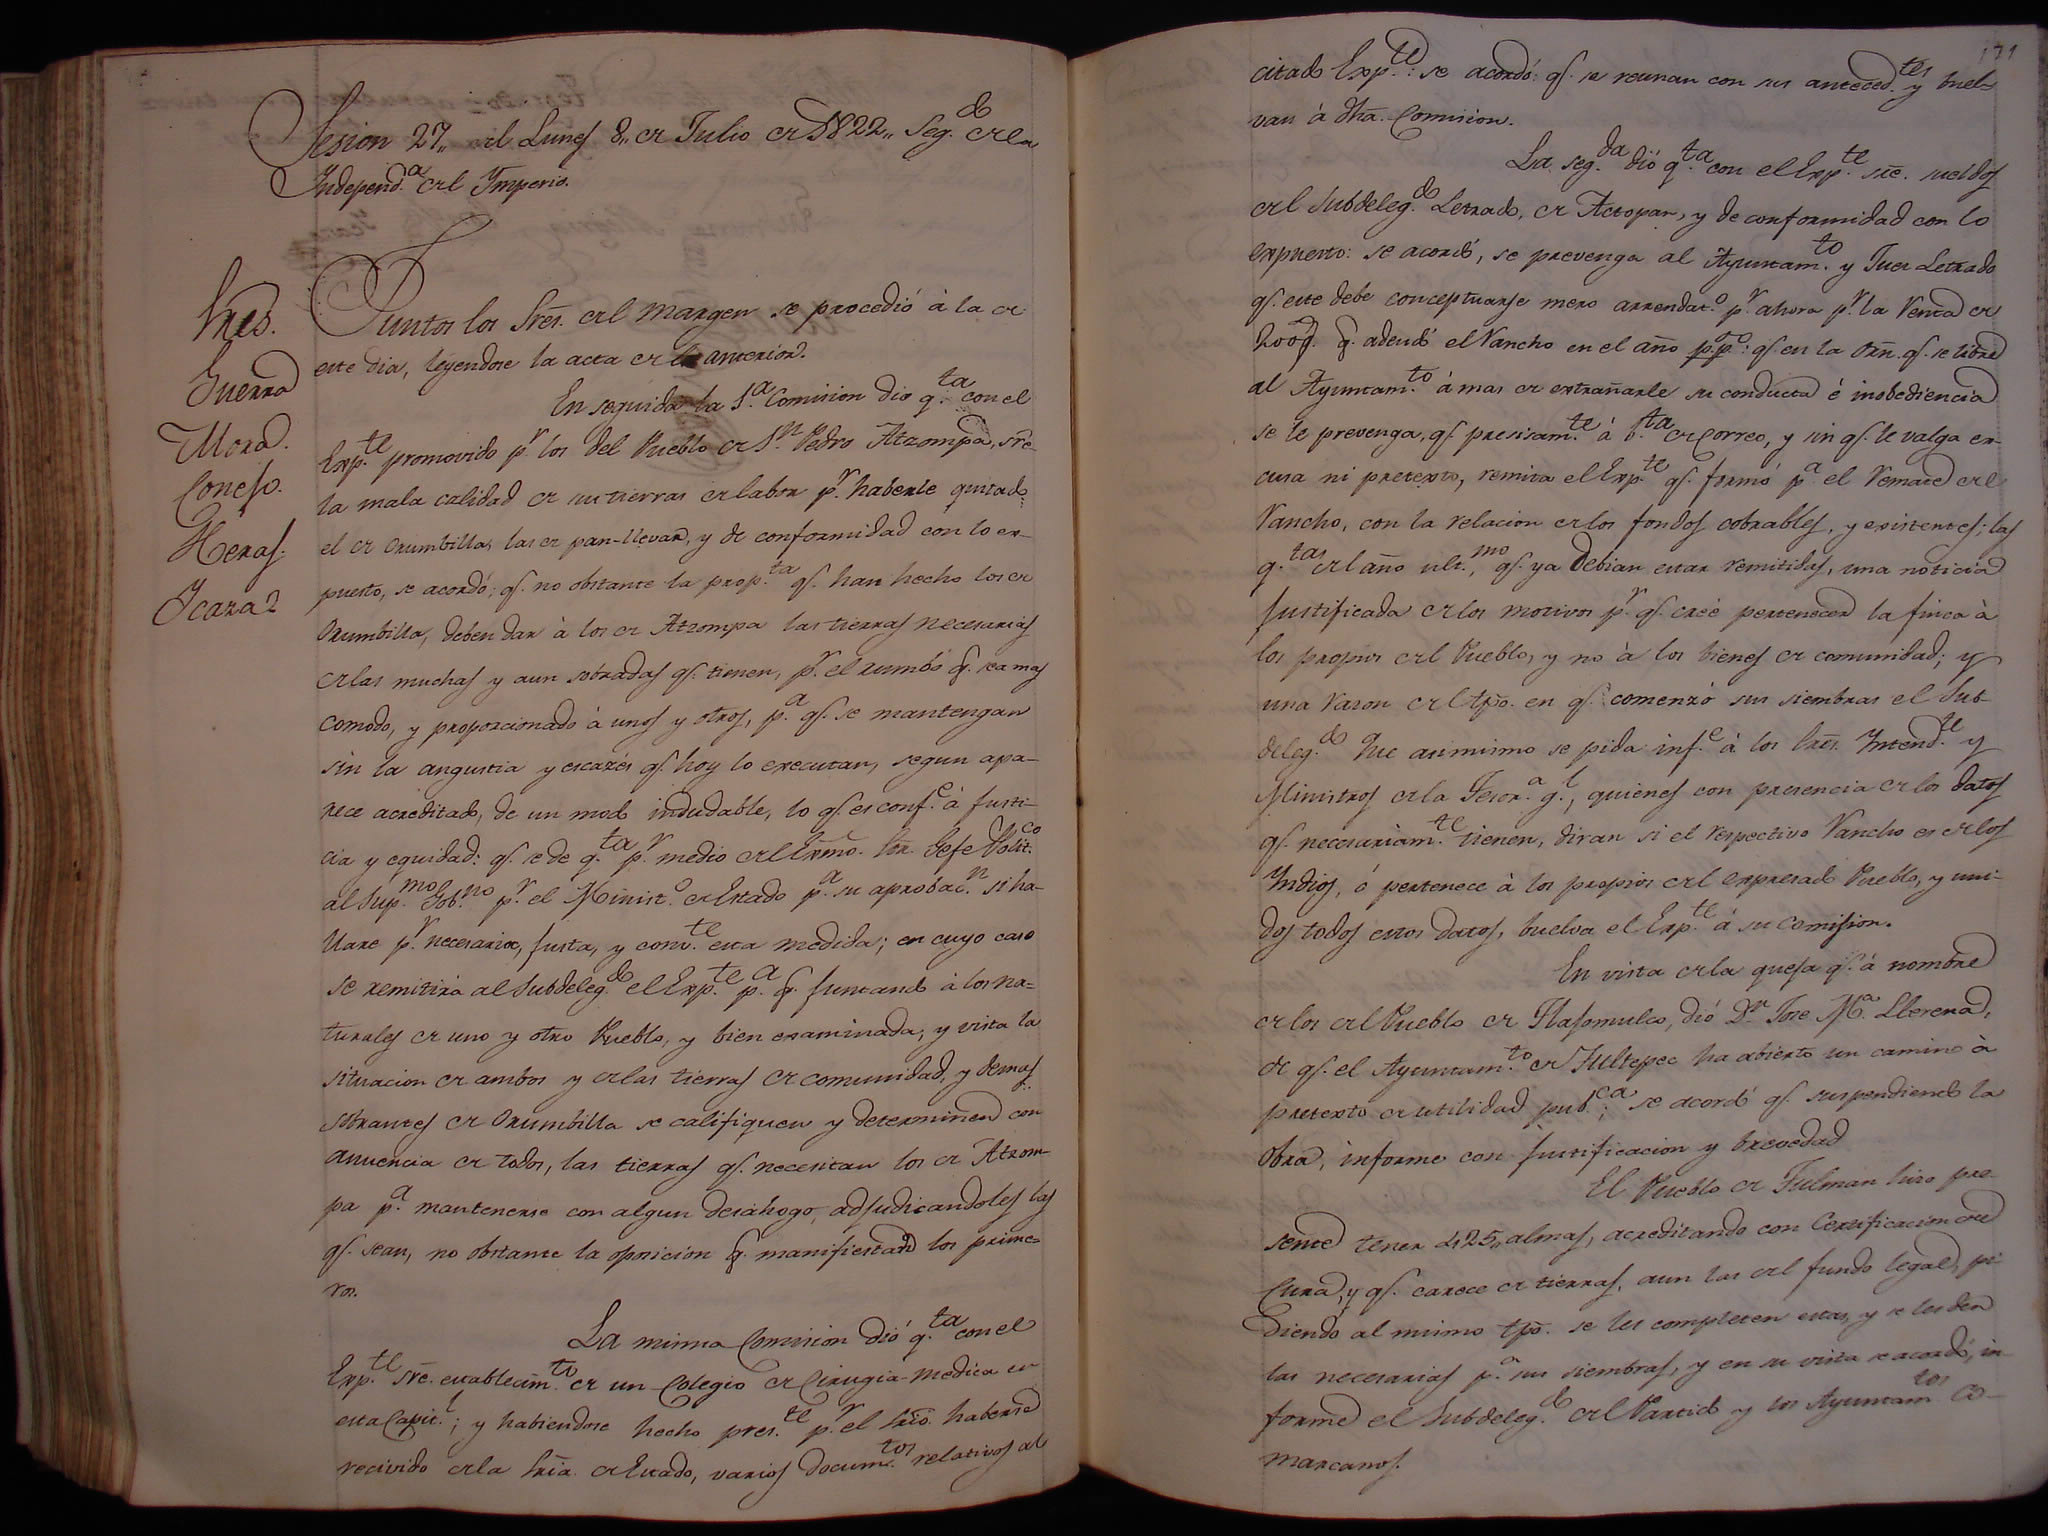 Sesion 27,, del Lunes 8,, de Julio de 1822,, Seg.do de la
Independ.a del Ymperio.
Sres.
Guerra
Mora.
Conejo.
Heras.
Icaza 2
Juntos los Sres. del margen se procedió à la de
este dia, leyendose la acta de la anterior.
En seguida la 1.a Comision dio q.ta con el
Exp.te promovido p.r los del Pueblo de S.n Pedro Atzompa, sre.
la mala calidad de su tierras de labor p.r haberle quitado
el de Ozumbilla, las de pan-llevar, y de conformidad con lo ex-
puesto, se acordó; q.e no obstante la prop.ta q.e han hecho los de
Ozumbilla, deben dar à los de Atzompa las tierras necesarias
de las muchas y aun sobradas q.e tienen, p.r el rumbo q.e sea mas
comodo, y proporcionado à unos y otros, p.a q.e se mantengan
sin la angustia y escazés q.e hoy lo executan, segun apa-
rece acreditado, de un modo indudable, lo q.e es conf.e à justi-
cia y equidad: q.e se de q.ta p.r medio del Exmo. Sor. Gefe Polit.co
al Sup.mo Gob.no p.r el Minist.o de Estado p.a su aprobac.n si ha-
llare p.r necesaria, justa, y conv.te esta medida; en cuyo caso
se remitirà al Subdeleg.do el Exp.te p.a q.e juntando à los na-
turales de uno y otro Pueblo, y bien examinada, y vista la
situacion de ambos y de las tierras de comunidad, y demas
sobrantes de Ozumbilla se califiquen y determinen con
anuencia de todos, las tierras q.e necesitan los de Atzom-
pa p.a mantenerse con algun desahogo, adjudicandoles las
q.e sean, no obstante la oposicion q.e manifiestan los prime-
ros.
La misma Comision dió q.ta con el
Exp.te sre. establecim.to de un Colegio de Cirugia-medica en
esta Capit.l; y habiendose hecho pres.te p.r el Srio. haberse
recivido de la Sria. de Estado, varios docum.tos relativos al
171
citado Exp.te: se acordó: q.e se reunan con sus anteced.tes y buel-
van à dha. Comision.
La seg.da dió q.ta con el Exp.te sre. sueldos
del Subdeleg.do Letrado, de Actopan, y de conformidad con lo
expuesto: se acordó, se prevenga al Ayuntam.to y Juez Letrado
q.e este debe conceptuarse mero arrendat.o p.r ahora p.r la Renta de
200p. q.e adeudó el Rancho en el año p.p.o: q.e en la Orn. q.e se libre
al Ayuntam.to à mas de extrañarle su conducta é inobediencia
se le prevenga, q.e presisam.te à b.ta de Correo, y sin q.e le valga ex-
cusa ni pretexto, remita el Exp.te q.e formó p.a el Remate del
Rancho, con la relacion de los fondos cobrables, y existentes; las
q.tas del año ult.mo, q.e ya debian estar remitidas, una noticia
justificada de los motivos p.r q.e creé pertenecer la finca à
los propios del Pueblo, y no à los bienes de comunidad; y
una razon del tpo. en q.e comenzó sus siembras el Sub-
deleg.do Que asimismo se pida inf.e à los Sres. Yntend.te y
Ministros de la Tesor.a g.l, quienes con presencia de los datos
q.e necesariam.te tienen, diran si el respectivo Rancho es de los
Yndios, ó pertenece à los propios del expresado Pueblo, y uni-
dos todos estos datos, buelva el Exp.te à su comision.
En vista de la queja q.e à nombre
de los del Pueblo de Tlajomulco, dió D.n Jose M.a Llerena,
de q.e el Ayuntam.to de Tultepec ha abierto un camino à
pretexto de utilidad pub.ca; se acordó q.e suspendiendo la
obra, informe con justificacion y brevedad
El Pueblo de Tulman hizo pre-
sente tener 425,, almas, acreditando con Certificacion del
Cura, y q.e carece de tierras, aun las del fundo legal, pi-
diendo al mismo tpo. se les completen estas, y se les den
las necesarias p.a sus siembras, y en su vista se acordó, in-
forme el Subdeleg.do del Partido y los Ayuntam.tos Co-
marcanos.